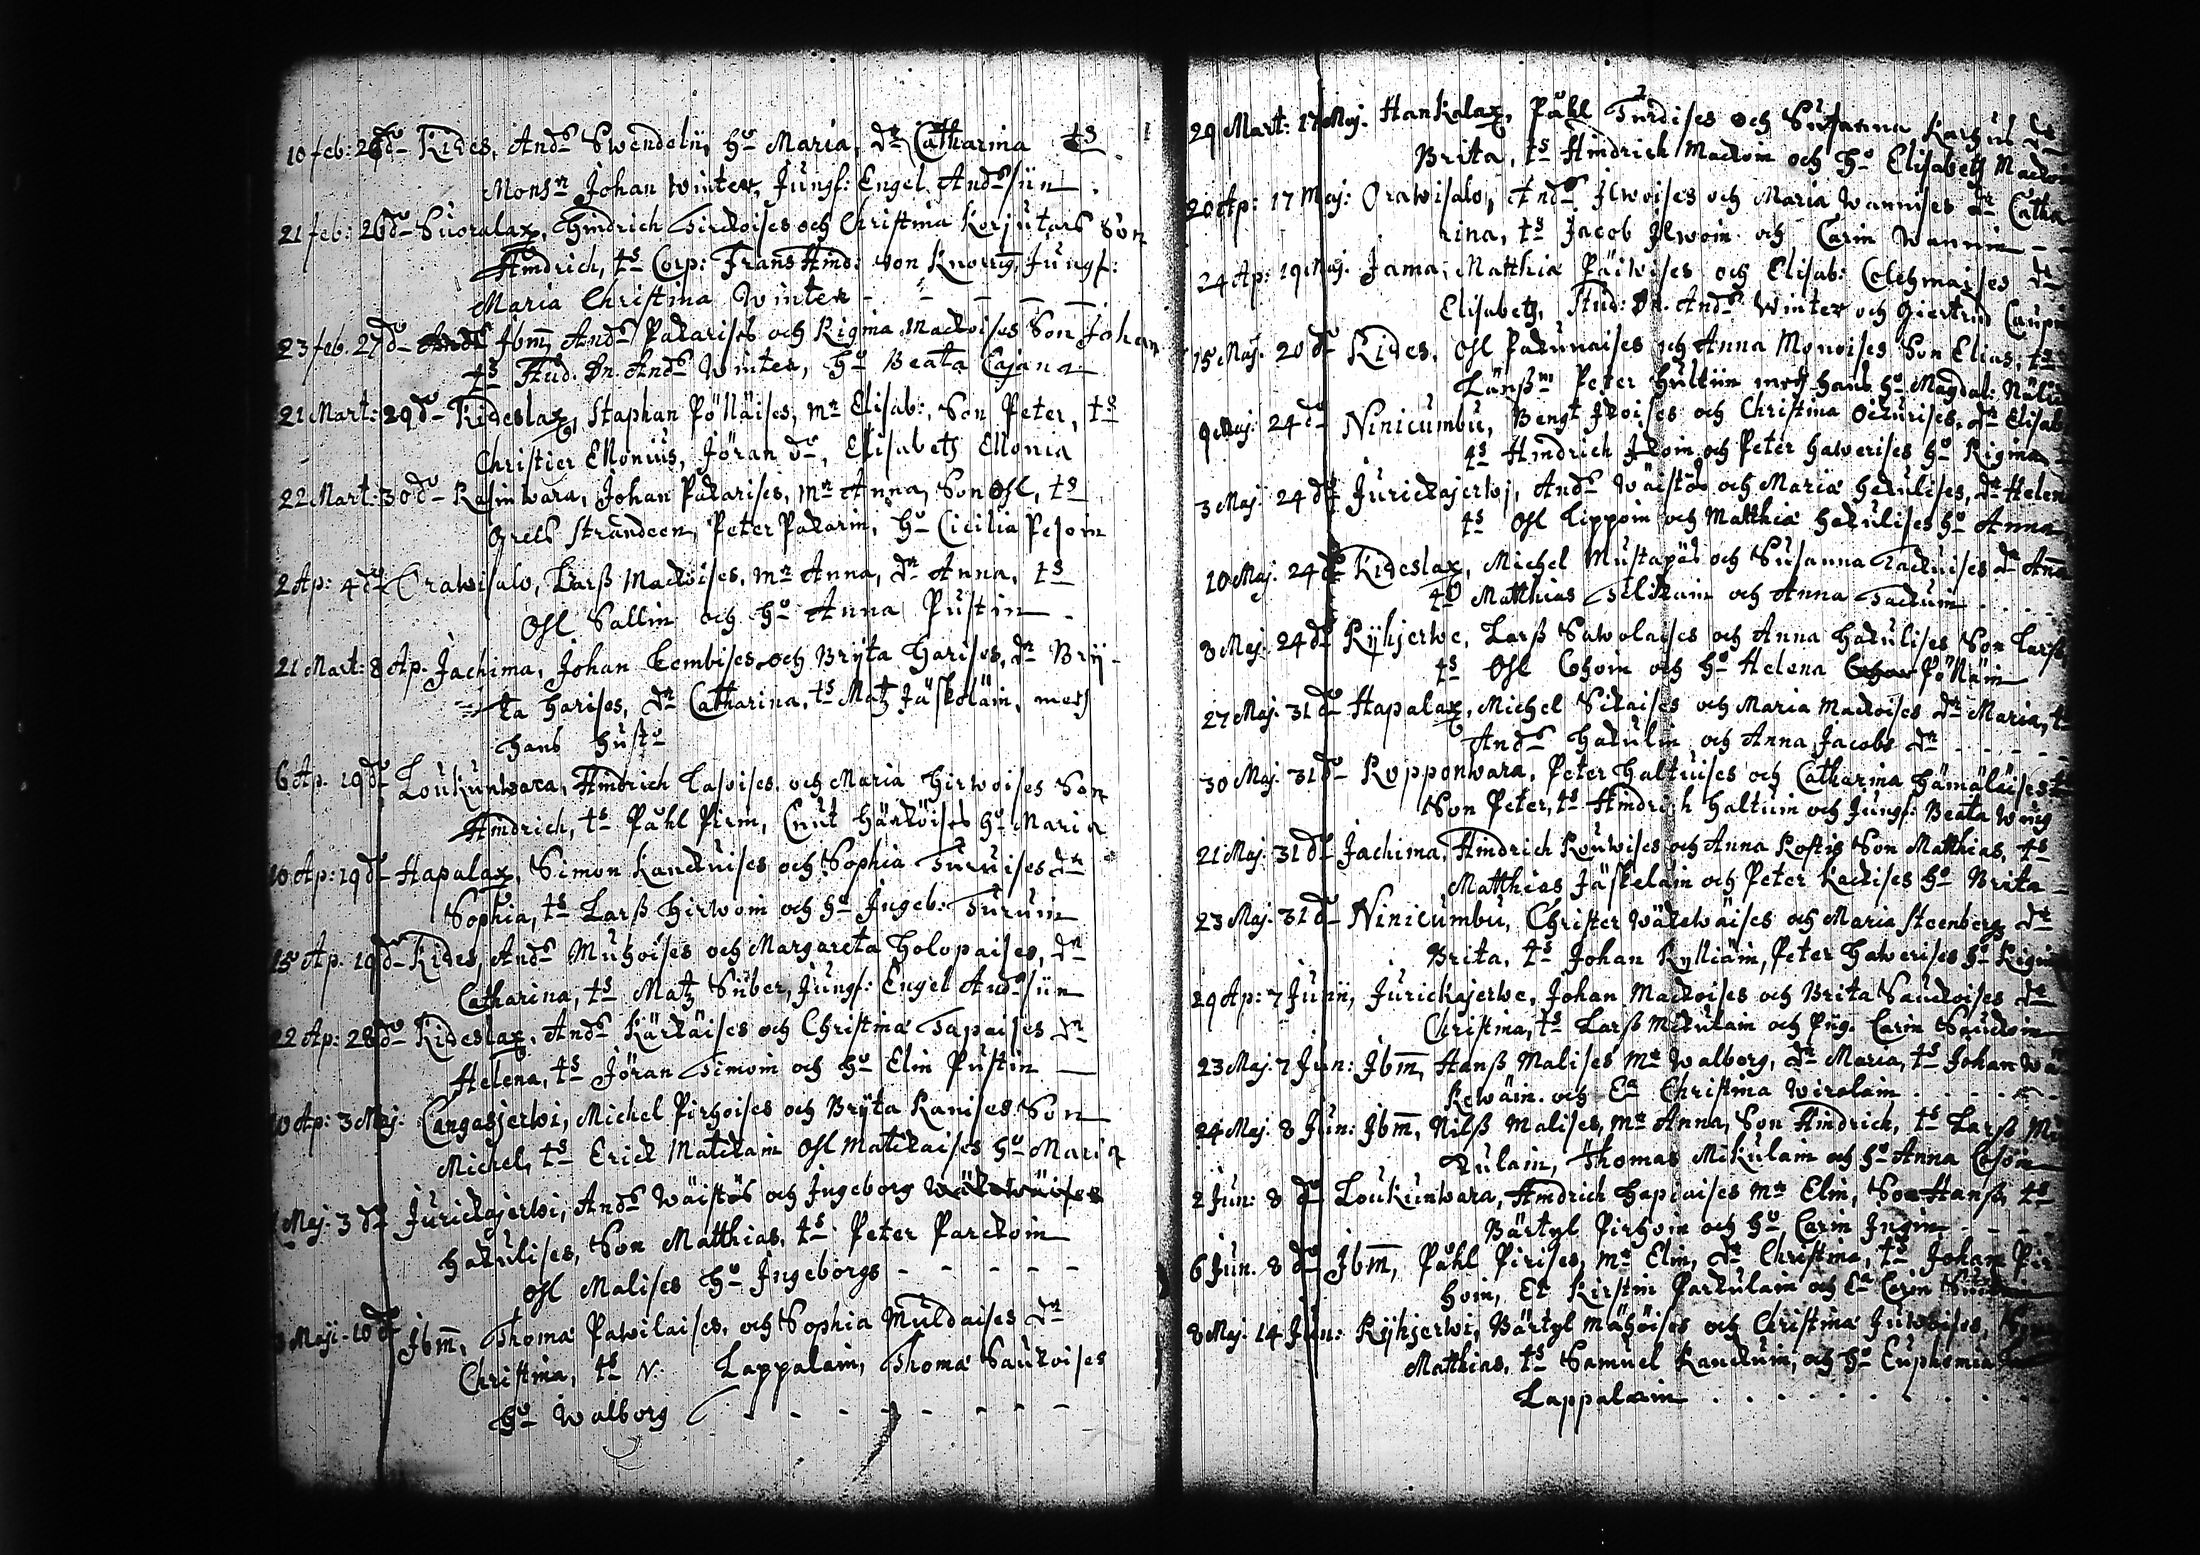 10 feb: 26 do Kides, Ands Swendelii, ho Maria, dr Catharina ts
Monsr Johan Winter, Jungf: Engel Andssün
21 feb: 26 do Suoralax, Hindrich Tirckoises och Christina Korjutars Son
Hindrich, ts Corp: Frans Hind: von Knorring, Jungf:
Maria Christina Winter
23 feb. 27 do Ibm, Andr Pakarises och Rigina Mackoises Son Johan
ts Stud. Dn. Ands Winter, ho Beata Cajana
21 Mart: 29 do Kideslax, Staphan Pölläises, mr Elisab:, Son Peter, ts
Christier Ellonius, Jöran do, Elisabeth Ellonia
22 Mart: 30 do Rasinwara, Johan Pakarises, mr Anna, Son Ohl, ts
Grels Strandeen, Peter Pakarin, ho Cicilia Pesoin
2 Ap: 4 do Crawisalo, Larß Mackoises, mr Anna, dr Anna, ts
Ohl Sallin och ho Anna Pustin
21 Mart: 8 Ap. Jachima, Johan Lembises och Bryta Harises, dr Bry-
ta Harises, dr Catharina, ts Matz Jäskoläin, medh
hans husto
6 Ap. 19 do Loukunwara, Hindrich Lasoises och Maria Hirwoises Son
Hindrich, ts Påhl Pirin, Cnut Härköises ho Maria
10 Ap: 19 do Hapalax, Simon Kanckuises och Sophia Turuises dr
Sophia, ts Larß Hirwoin och ho Ingeb: Turuin
15 Ap. 19 do Kides, Ands Muhoises och Margareta Holopaises, dr
Catharina, ts Matz Süber, Jungf: Engel Andssün
22 Ap: 28 do Kideslax, Ands Kärkäises och Christina Tapaises dr
Helena, ts Jöran Timoin och ho Elin Pustin
10 Ap: 3 Maj. Cangasjerwi, Michel Pirhoises och Bryta Ranises Son
Michel, ts Erick Matckain Ohl Matckaises ho Maria
Maj. 3 do Jurickajerwi, Ands Wäistös och Ingeborg
Hakulises, Son Matthias, ts Peter Parckoin
Ohl Malises ho Ingeborgs
Maji. 10 do Ibm, Thoma Pawilaises, och Sophia Muldaises dr
Christina, ts N. Lappalain, Thoma Saukoises
ho Walborg
29 Mart: 17 Maj. Hankalax, Påhl Turdises och Susanna Karhul dr
Brita, ts Hindrich Mackoin och ho Elisabeth Macko
20 Ap: 17 Maj: Orawisalo, Ands Ilwoises och Maria Wannises dr Catha
rina, ts Jacob Ilwoin och Carin Wannin
24 Ap: 19 Maj. Jama, Matthia Päiwises och Elisab: Colehmaises dr
Elisabeth, Stud: Dn. Ands Winter och Giertrud Caupi
15 Maj. 20 do Kides, Ohl Pakunaises och Anna Monoises Son Elias, ts
Länßm Peter Hultiin medh hans ho Magdal:
9 Maj. 24 do Ninicumbu, Bengt Ikoises och Christina Oikurises, dr Elisab
ts Hindrich Ikoin och Peter Hawerises ho Rigina
3 Maj. 24 do Jurickajerwj, Ands Wäistös och Maria Hakulises, dr Helen
ts Ohl Lippoin och Matthia Hakulises ho Anna
10 Maj. 24 do Kideslax, Michel Mustapäs och Susanna Tackuises dr Anna
ts Matthias Silikain och Anna Tackuin
8 Maj. 24 do Ryhjerwe, Larß Sawolaises och Anna Hakulises Son Larß
ts Ohl Cohoin och ho Helena Pölläin
27 Maj. 31 do Hapalax, Michel Sikaises och Maria Mackoises dr Maria, ts
Ands Hakulin och Anna Jacobs dr
30 Maj. 31 do Ropponwara, Peter Haltuises och Catharina Hämäläises
Son Peter, ts Hindrich Haltuin och Jungf: Beata
21 Maj. 31 do Jachima, Hindrich Rouwises och Anna Rostis Son Matthias, ts
Matthias Jäskelain och Peter Kackises ho Brita
23 Maj. 31 do Ninicumbu, Christer Wäkewäises och Maria Steenberg dr
Brita, ts Johan Kylliäin, Peter Hawerises ho Rigin
29 Ap: 7 Junii, Jurickajerwe, Johan Mackoises och Brita Sauckoises dr
Christina, ts Larß Mikulain och Pig. Carin Sauckoin
23 Maj. 7 Jun: Ibm, Hanß Malises mr Walborg, dr Maria, ts Johan Wä
Kewäin och Ea Christina Wirolain
24 Maj. 8 Jun: Ibm, Nilß Malises, mr Anna, Son Hindrich, ts Larß Mi
kulain, Thomas Mikulain och ho Anna
2 Jun: 8 do Loukunwara, Hindrich Hapiaises mr Elin, Son Hanß, ts
Bärtyl Pirhoin och ho Carin Ingin
6 Jun. 8 do Ibm, Påhl Pirises, mr Elin, dr Christina, ts Johan Pir
hoin, Et Kirstin Parkulain och Ea Carin
8 Maj. 14 Jun: Ryhjerwi, Bärtyl Mähöises och Christina Juwoises,
Matthias, ts Samuel Kanckuin, och ho Euphemia
Lappalain